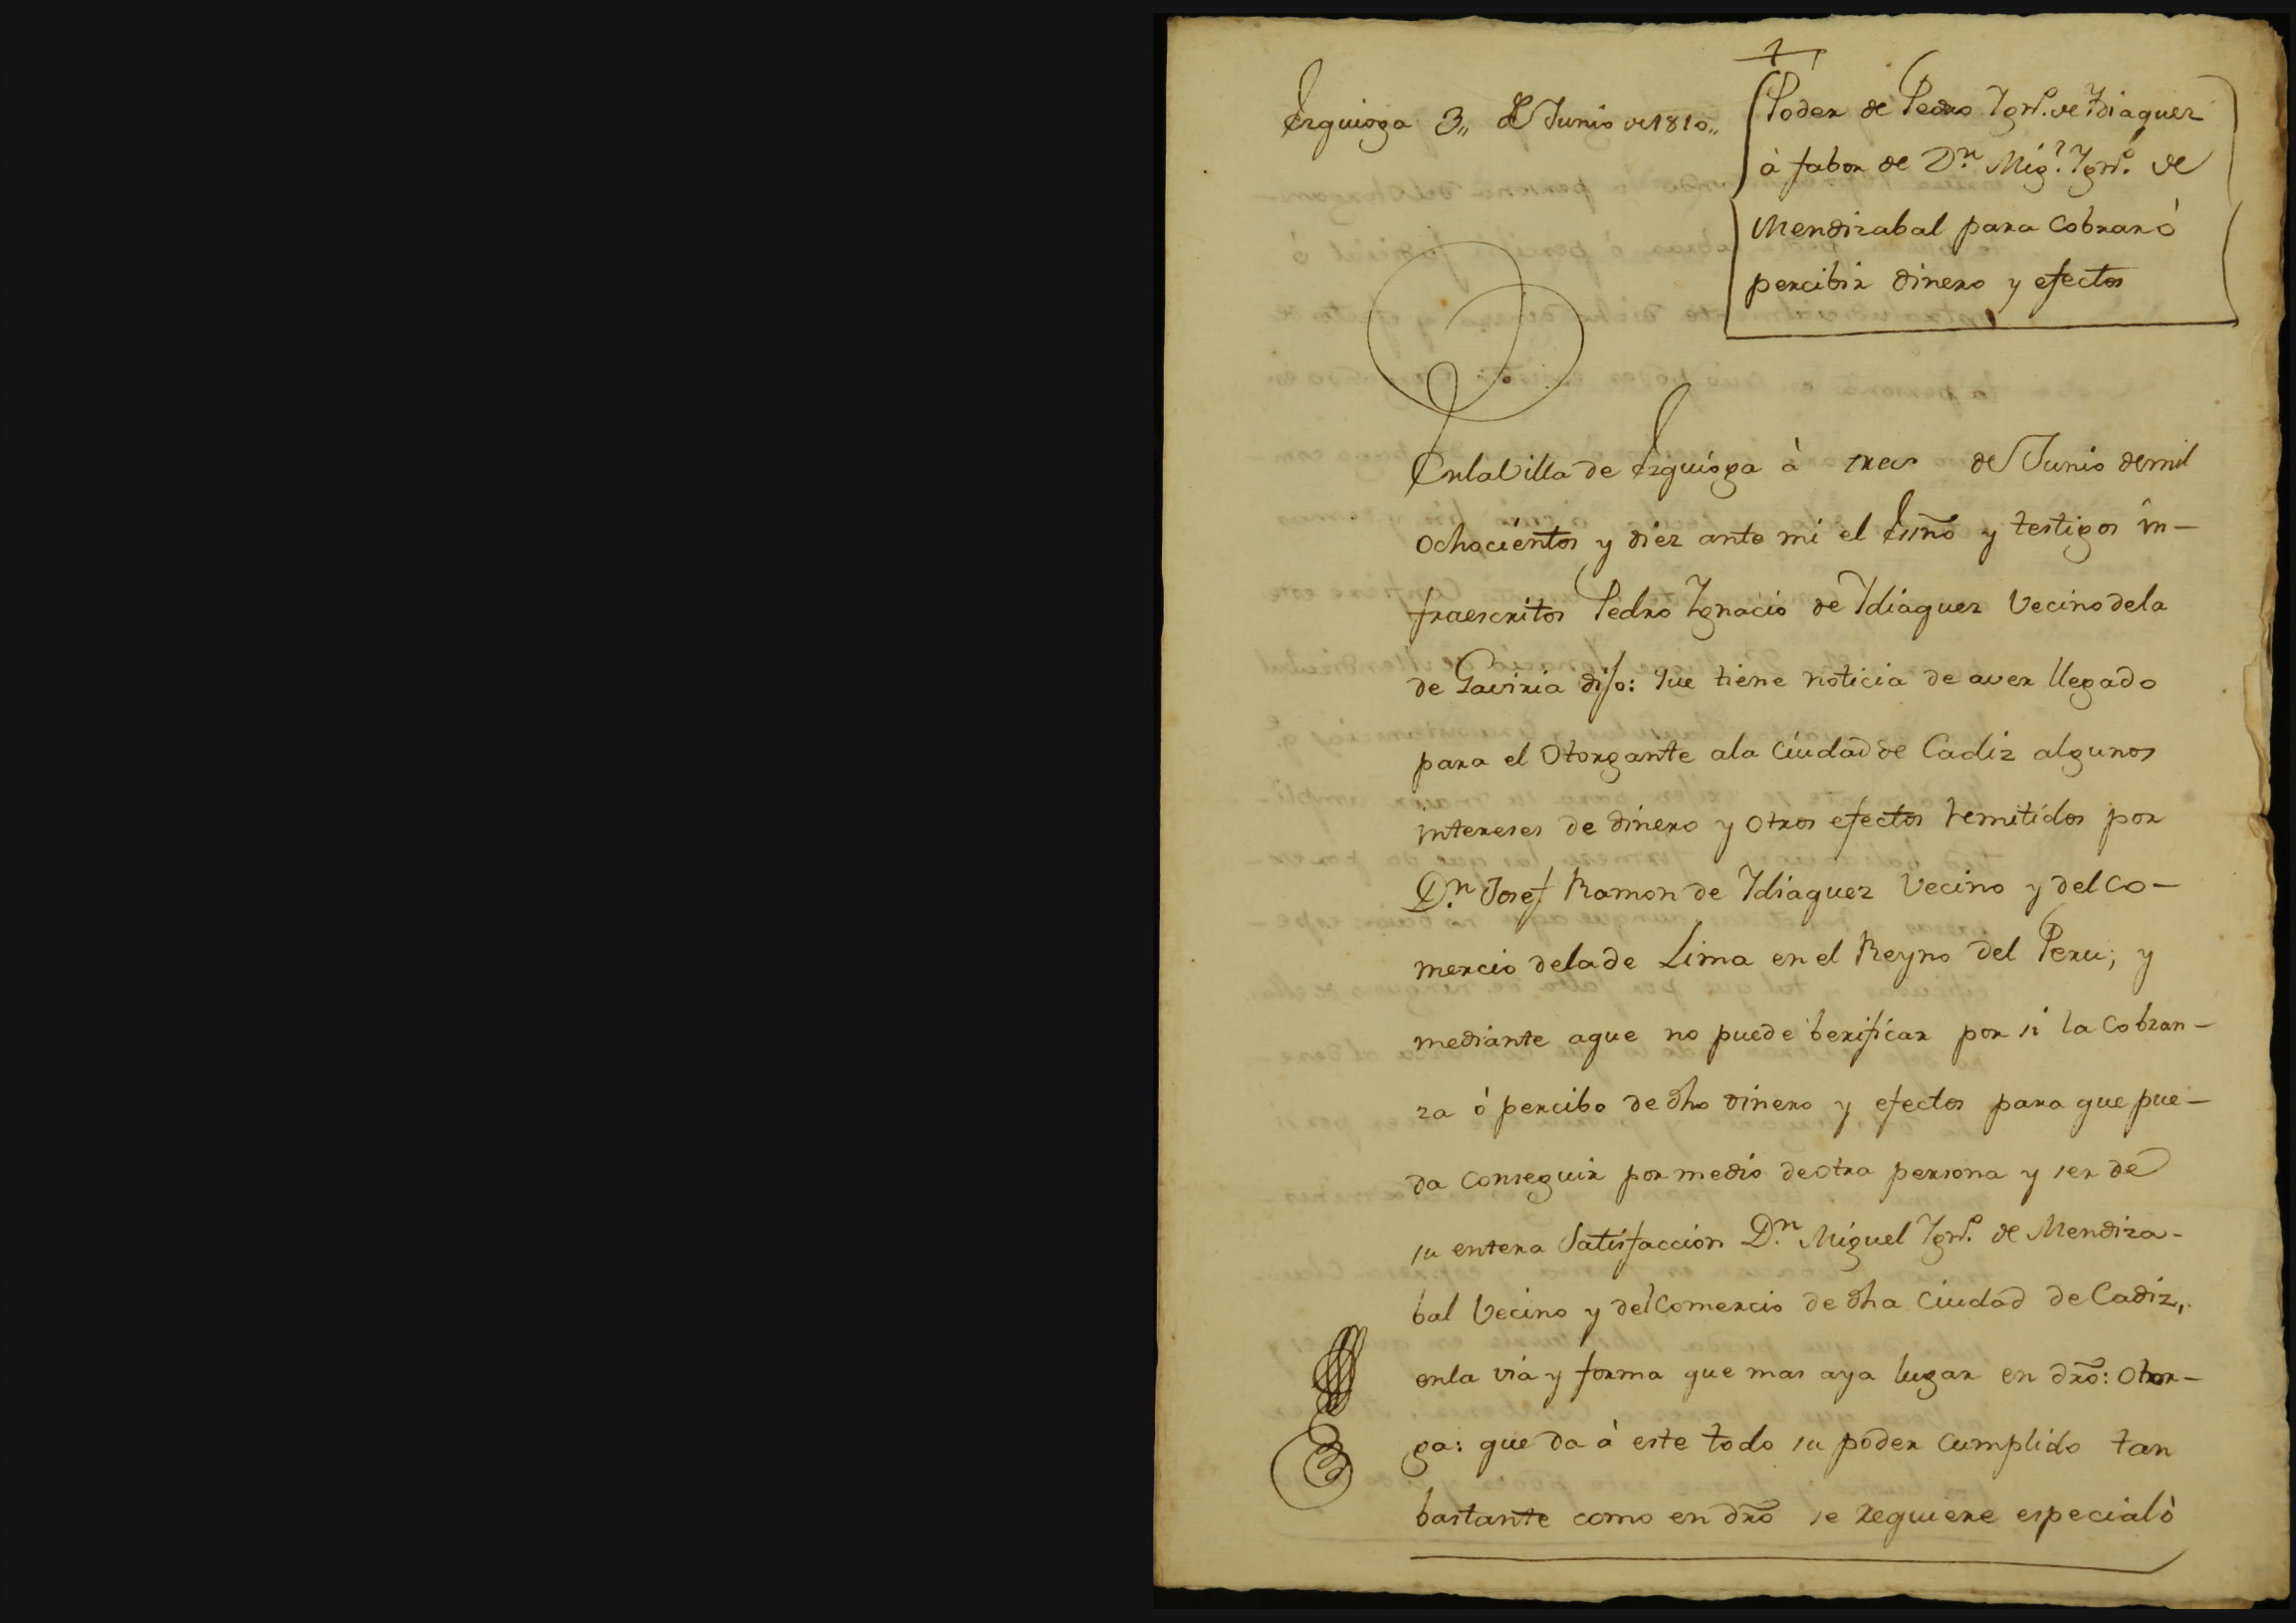 Ezquioga 3,, de Junio de 1810,,
Poder de Pedro Ygn.º de Ydiaquez
à fabor de D.n Mig.l Ygn.º de
Mendizabal para Cobrar ó
percibir dinero y efectos
En la Villa de Ezquioga à tres de Junio de mil
ochocientos y diez ante mi el Essno y testigos in-
fraescritos Pedro Ygnacio de Ydiaquez Vecino de la
de Gaviria dijo: que tiene noticia de aver llegado
para el Otorgante a la Ciudad de Cadiz algunos
intereses de dinero y otros efectos remitidos por
D.n Josef Ramon de Ydiaquez Vecino y del Co-
mercio de la de Lima en el Reyno del Peru; y
mediante a que no puede berificar por si la Cobran-
za ó percibo de dho dinero y efectos para que pue-
da Conseguir por medio de otra persona y ser de
su entera Satisfaccion D.n Miguel Ygn.º de Mendiza-
bal Vecino y del Comercio de dha Ciudad de Cadiz,
en la via y forma que mas aya lugar en dro: Otor-
ga: que da à este todo su poder Cumplido tan
bastante como en dro se requiere especial ò